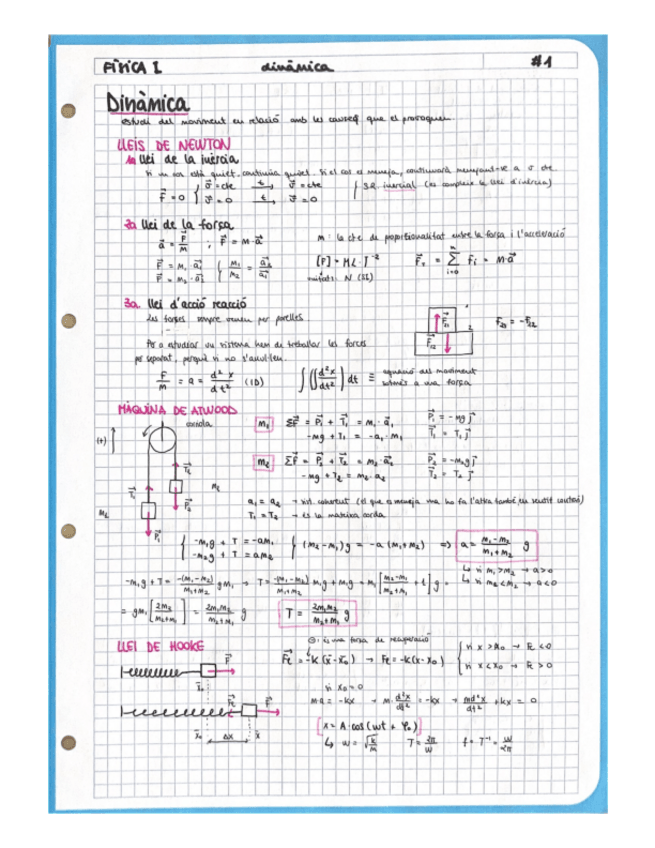 FÍSICA I dinàmica #1
Dinàmica
estudi del moviment en relació amb les causes que el provoquen.
LLEIS DE NEWTON
1a llei de la inèrcia
Si un cos està quiet, continua quiet. Si el cos es mou, continuarà movent-se a v cte
F⃗ = 0 { v⃗ = cte →t v⃗ = cte
v⃗ = 0 →t v⃗ = 0
S.R. inercial (es compleix la llei d'inèrcia)
2a llei de la força
a⃗ = F⃗/M ; F⃗ = M·a⃗
M: la cte de proporcionalitat entre la força i l'acceleració
F⃗ = M₁ a⃗₁
F⃗ = M₂·a⃗₂ { M₁/M₂ = a⃗₂/a⃗₁
[F] = M L·T⁻²
unitats: N (SI)
F⃗ᵣ = Σ fᵢ = M·a⃗
n
i=0
3a. llei d'acció reacció
Les forces sempre venen per parelles.
Per a estudiar un sistema hem de treballar les forces
per separat, perquè si no s'anul·len.
F/M = a = d²x/dt² (1D)
∫(∫(d²x/dt²) dt ≡ equació del moviment
sotmès a una força
F⃗₂₁ 2
F⃗₁₂
MÀQUINA DE ATWOOD
corriola
(+)
T⃗₂
T⃗₁
M₂
P⃗₂
P⃗₁
m₁ ΣF⃗ = P⃗₁ + T⃗₁ = m₁·a⃗₁
-mg + T₁ = -a₁·m₁
P⃗₁ = -mg j⃗
T⃗₁ = T₁ j⃗
m₂ ΣF⃗ = P⃗₂ + T⃗₂ = m₂·a⃗₂
-mg + T₂ = m₂·a₂
P⃗₂ = -m₂g j⃗
T⃗₂ = T₂ j⃗
a₁ = a₂ → sist. coherent
T₁ = T₂ → és la mateixa corda
{ -m₁g + T = -am₁
-m₂g + T = am₂
{ (m₂-m₁)g = -a(m₁+m₂) ⇒ a = (m₁-m₂)/(m₁+m₂) g
↳ si m₁>m₂ → a>0
↳ si m₁<m₂ → a<0
T = 2m₁m₂/(m₂+m₁) g
LLEI DE HOOKE
⊖: és una força de recuperació
F⃗ₑ = -k(x⃗-x⃗₀) → Fₑ = -k(x-x₀)
{ si x>x₀ → Fₑ<0
si x<x₀ → Fₑ>0
F⃗
x⃗₀
F⃗ₑ F⃗
x⃗₀ Δx x⃗
si x₀=0
m·a = -kx → m·d²x/dt² = -kx → md²x/dt² + kx = 0
[x = A·cos(ωt + φ₀)]
↳ ω = √(k/m) T = 2π/ω f = T⁻¹ = ω/2π